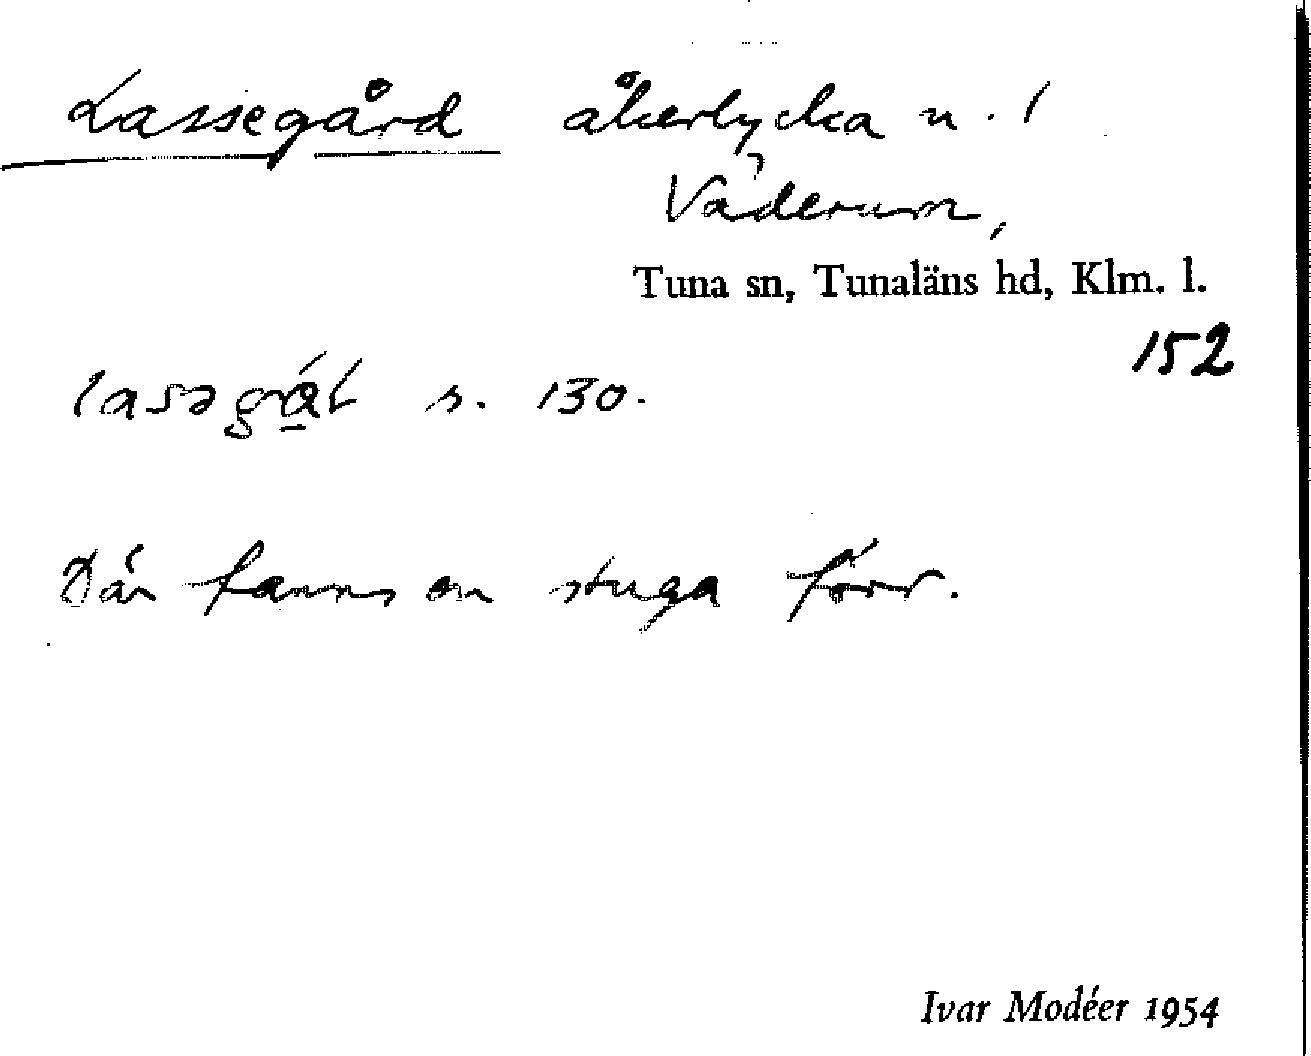 Lassegård åkerlycka n. 1
Väderum,
Tuna sn, Tunaläns hd, Klm. l.
152
s. 130.
Där fanns en stuga förr.
Ivar Modéer 1954